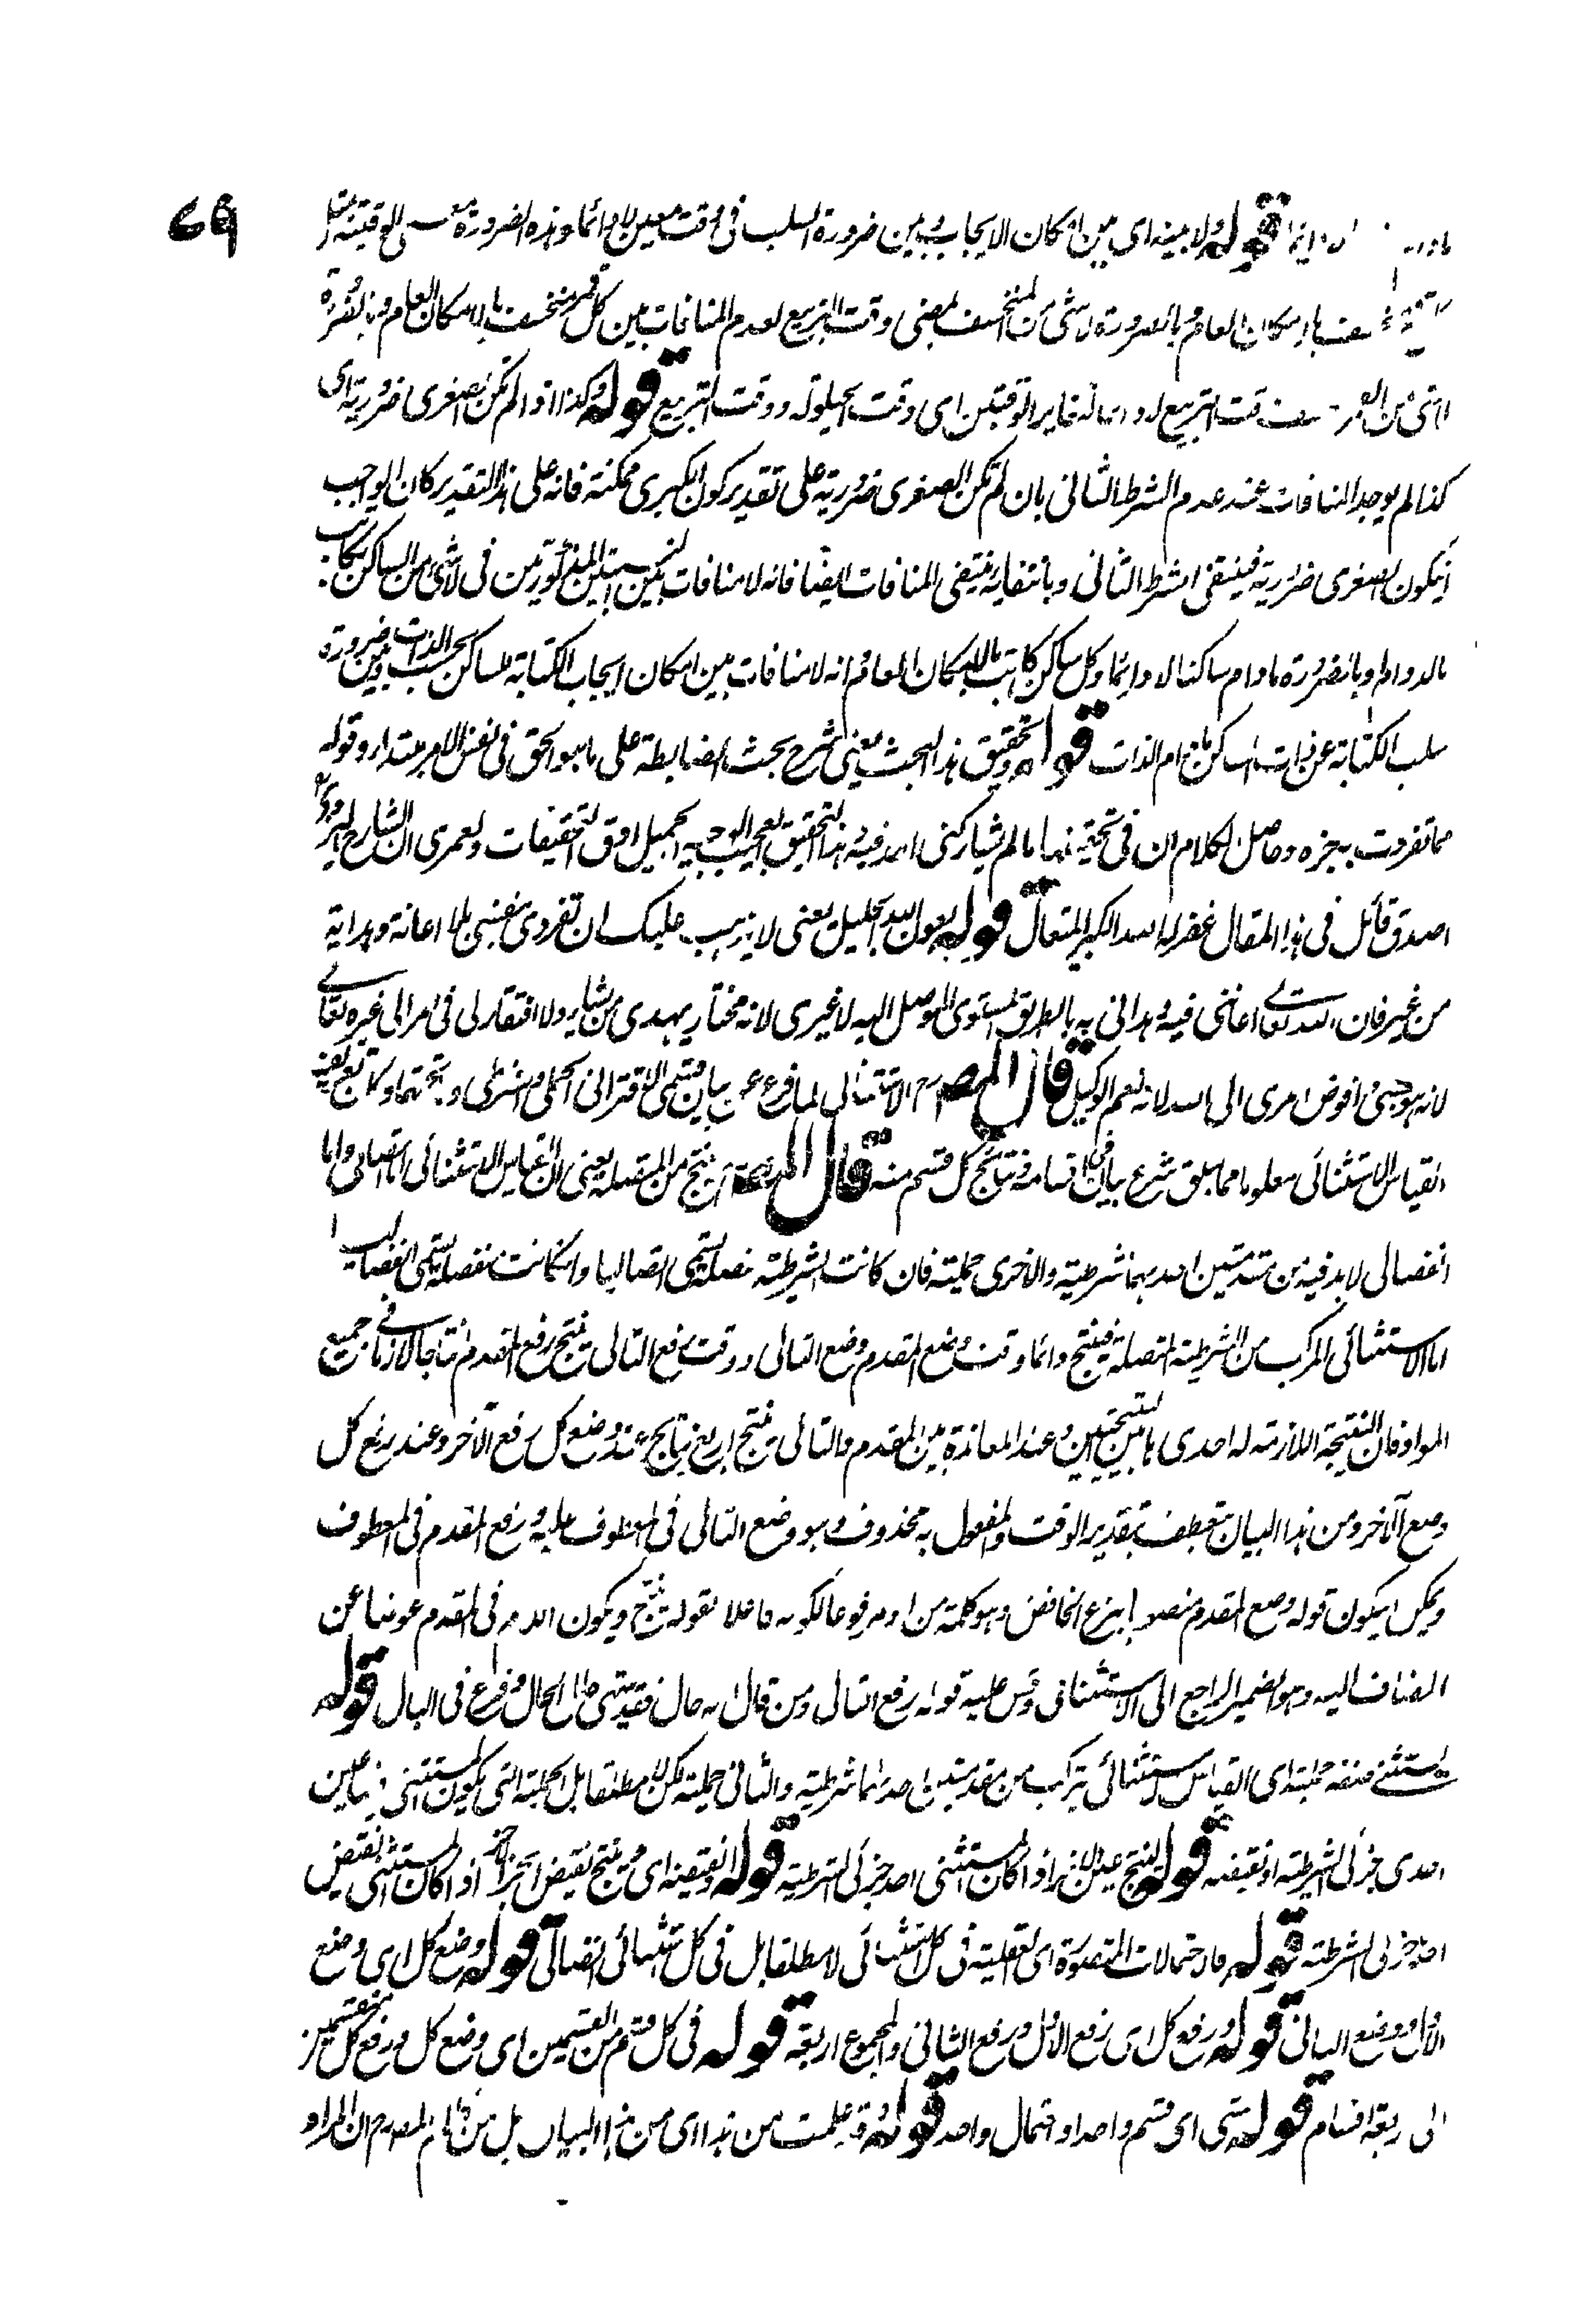 69
قوله ولا بينه اى بين امكان الايجاب وبين ضرورة السلب فى وقت معين لا دائما وهذه الضرورة تسمى الوقتية مثل
بالامكان العام وبالضرورة لا شئ من المنخسف بمضئ وقت التربيع لعدم المنافات بين كل قمر منخسف بالامكان العام وبالضرورة
لا شئ من القمر وقت التربيع لا دائما لتغاير الوقتين اى وقت الحيلولة ووقت التربيع قوله وكذا اذا لم تكن الصغرى ضرورية اى
كذا لم يوجد المنافات عند عدم الشرط الثانى بان لم تكن الصغرى ضرورية على تقدير كون الكبرى ممكنة فانه على هذا التقدير كان الواجب
ان يكون الصغرى ضرورية فينتفى الشرط الثانى وبانتفايه ينتفى المنافات ايضا فانه لا منافات بين النسبتين المذكورتين فى لا شئ من الساكن بكاتب
بالدوام وبالضرورة مادام ساكنا لا دائما وكل ساكن كاتب بالامكان العام فانه لا منافات بين امكان ايجاب الكتابة للساكن بحسب الذات وبين ضرورة
سلب الكتابة عن ذات الساكن مادام الذات قوله وتحقيق هذا البحث يعنى شرح بحث الضابطة على ما هو الحق فى نفس الامر مبتدأ وقوله
مما تفردت به خبره وحاصل الكلام ان فى تحقيقها ما لم يشاركنى احد فيه وهذا التحقيق العجيب الوجيه الجميل ادق التحقيقات ولعمرى ان الشارح اليزدى
اصدق قائل فى هذا المقال غفر له الله الكبير المتعال قوله بعون الله الجليل يعنى لا يذهب عليك ان تفردى بنفسى بلا اعانة وهداية
من غيرى فان الله تعالى اعاننى فيه وهدانى به بالطريق المستوى الموصل اليه لا غيرى لانه مختار يهدى من يشاء ولا افتقار لى فى امر الى غيره تعالى
لانه هو حسبى وافوض امرى الى الله لانه نعم الوكيل قال المصـ رح الاستثنائى لما فرغ عن بيان قسمى الاقترانى الحملى والشرطى و
القياس الاستثنائى معلوما مما سبق شرع بيان اقسامه ونتائج كل قسم منه قال المصـ ينتج من المتصلة يعنى ان القياس الاستثنائى اتصالى واما
انفصالى لا بد فيه من مقدمتين احدهما شرطية والاخرى حملية فان كانت الشرطية متصلة يسمى اتصاليا وان كانت منفصلة يسمى انفصاليا
اما الاستثنائى المركب من الشرطية المتصلة فينتج دائما وقت وضع المقدم وضع التالى ووقت رفع التالى ينتج رفع المقدم نتاجا لازما فى جميع
المواد فان النتيجة اللازمة له احدى هاتين النتيجتين وعند المعاندة بين المقدم والتالى ينتج اربع نتائج عند وضع كل رفع الآخر وعند رفع كل
وضع الآخر ومن هذا البيان تعطف بتقدير الوقت والمفعول به محذوف وهو وضع التالى فى المعطوف عليه ورفع المقدم فى المعطوف
ويمكن ان يكون قوله وضع المقدم منصوبا بنزع الخافض وهو كلمة من او مرفوعا لكونه فاعلا لقوله ينتج ويكون اللام فى المقدم عوضا عن
المضاف اليه وهو الضمير الراجع الى الاستثنائى وقس عليه قوله رفع التالى ومن قال انه حال فقد بقى الحال فرغ فى البال قوله
استثنى منه حملية اى القياس الاستثنائى يتركب من مقدمتين احدهما شرطية والثانى حملية لكن لا مطلقا بل الحملية التى يكون المستثنى فيها عين
احدى جزئى الشرطية او نقيضه قوله لينتج عين الآخر اذا كان المستثنى احد جزئى الشرطية قوله او نقيضه اى ينتج نقيض الجزء الآخر اذا كان المستثنى نقيض
احد جزئى الشرطية قوله فالاحتمالات المتصورة اى العقلية فى كل استثنائى لا مطلقا بل فى كل استثنائى اتصالى قوله وضع كل اى وضع
الاول ووضع الثانى قوله ورفع كل اى رفع الاول ورفع الثانى والمجموع اربعة قوله فى كل قسم من القسمين اى وضع كل ورفع كل
الى اربعة اقسام قوله شئ اى قسم واحد او احتمال واحد قوله وقد علمت من هذا اى من هذا البيان بل من كلام المصـ رح ان المراد